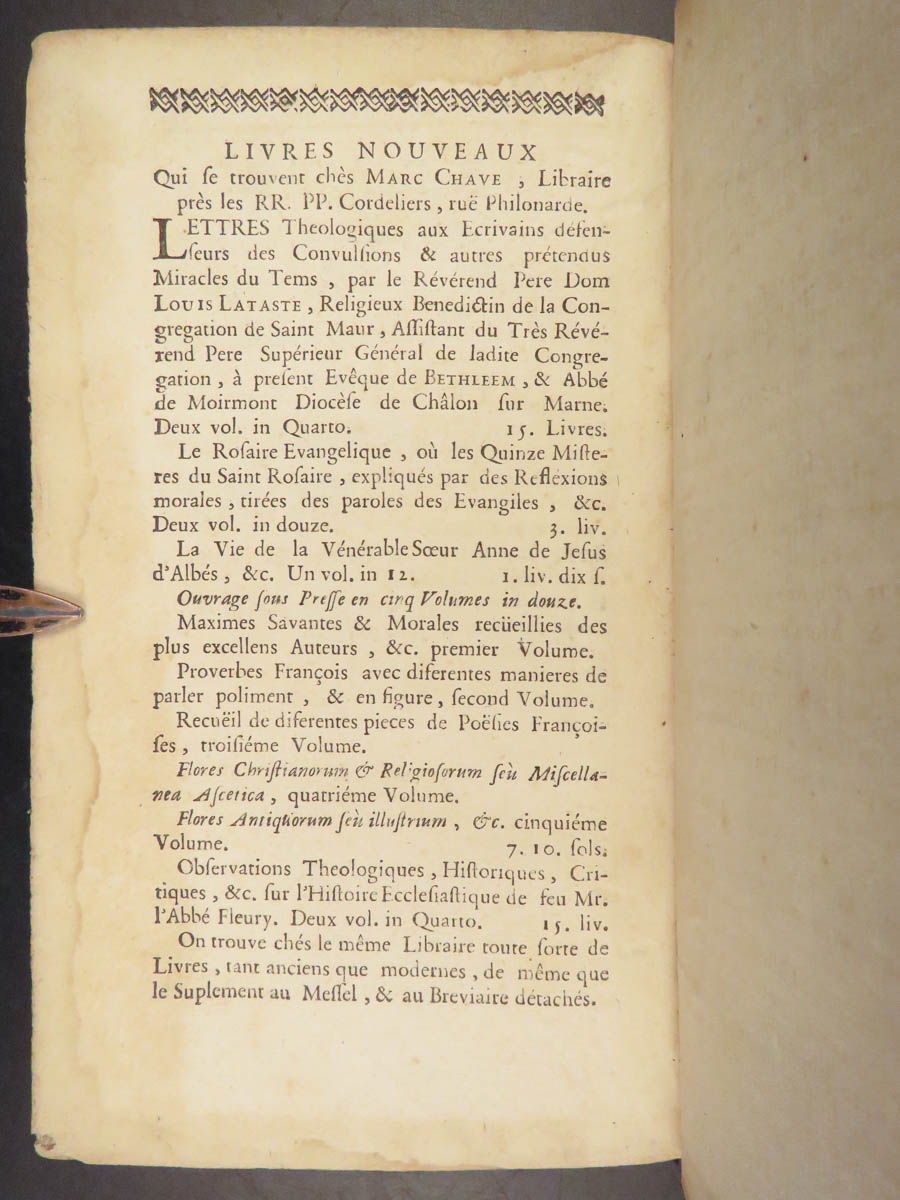 LIVRES NOUVEAUX
Qui ſe trouvent chès MARC CHAVE , Libraire
près les RR. PP. Cordeliers , ruë Philonarde.
LETTRES Theologiques aux Ecrivains défen-
ſeurs des Convulſions & autres prétendus
Miracles du Tems , par le Révérend Pere Dom
LOUIS LATASTE , Religieux Benedictin de la Con-
gregation de Saint Maur , Aſſiſtant du Très Révé-
rend Pere Supérieur Général de ladite Congre-
gation , à preſent Evêque de BETHLEEM , & Abbé
de Moirmont Diocèſe de Châlon ſur Marne.
Deux vol. in Quarto. 15. Livres.
Le Roſaire Evangelique , où les Quinze Miſte-
res du Saint Roſaire , expliqués par des Reflexions
morales , tirées des paroles des Evangiles , &c.
Deux vol. in douze. 3. liv.
La Vie de la Vénérable Sœur Anne de Jeſus
d'Albés , &c. Un vol. in 12. 1. liv. dix ſ.
Ouvrage ſous Preſſe en cinq Volumes in douze.
Maximes Savantes & Morales recüeillies des
plus excellens Auteurs , &c. premier Volume.
Proverbes François avec diferentes manieres de
parler poliment , & en figure , ſecond Volume.
Recuëil de diferentes pieces de Poëſies Françoi-
ſes , troiſiéme Volume.
Flores Chriſtianorum & Religioſorum ſeù Miſcella-
nea Aſcetica , quatriéme Volume.
Flores Antiquorum ſeù illuſtrium , &c. cinquiéme
Volume. 7. 10. ſols.
Obſervations Theologiques , Hiſtoriques , Cri-
tiques , &c. ſur l'Hiſtoire Eccleſiaſtique de feu Mr.
l'Abbé Fleury. Deux vol. in Quarto. 15. liv.
On trouve chés le même Libraire toute ſorte de
Livres , tant anciens que modernes , de même que
le Suplement au Meſſel , & au Breviaire détachés.